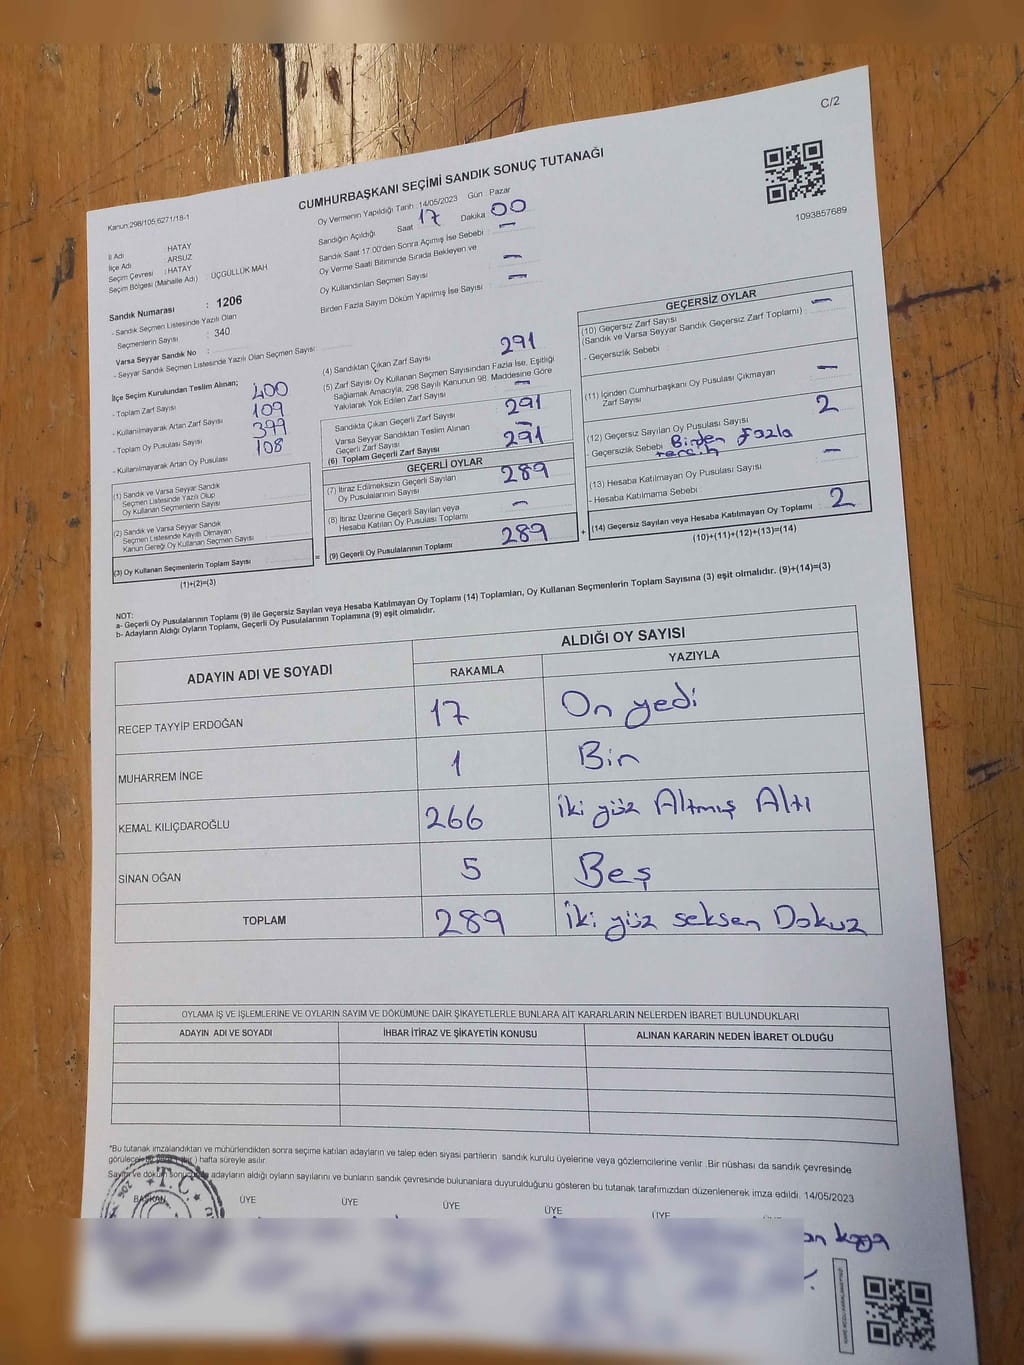 C/2
CUMHURBAŞKANI SEÇİMİ SANDIK SONUÇ TUTANAĞI
Kanun:298/105,6271/18-1
Oy Vermenin Yapıldığı Tarih : 14/05/2023 Gün : Pazar
1093857689
İl Adı : HATAY
İlçe Adı : ARSUZ
Seçim Çevresi : HATAY
Seçim Bölgesi (Mahalle Adı) ÜÇGÜLLÜK MAH
Sandığın Açıldığı Saat 17 Dakika 00
Sandık Saat 17:00'den Sonra Açılmış İse Sebebi : —
Oy Verme Saati Bitiminde Sırada Bekleyen ve
Oy Kullandırılan Seçmen Sayısı —
Birden Fazla Sayım Döküm Yapılmış İse Sayısı : —
Sandık Numarası : 1206
- Sandık Seçmen Listesinde Yazılı Olan
Seçmenlerin Sayısı : 340
Varsa Seyyar Sandık No :
- Seyyar Sandık Seçmen Listesinde Yazılı Olan Seçmen Sayısı:
İlçe Seçim Kurulundan Teslim Alınan;
- Toplam Zarf Sayısı 400
- Kullanılmayarak Artan Zarf Sayısı 109
- Toplam Oy Pusulası Sayısı 399
- Kullanılmayarak Artan Oy Pusulası 108
(1) Sandık ve Varsa Seyyar Sandık
Seçmen Listesinde Yazılı Olup
Oy Kullanan Seçmenlerin Sayısı
(2) Sandık ve Varsa Seyyar Sandık
Seçmen Listesinde Kayıtlı Olmayan
Kanun Gereği Oy Kullanan Seçmen Sayısı :
(3) Oy Kullanan Seçmenlerin Toplam Sayısı
(1)+(2)=(3)
(4) Sandıktan Çıkan Zarf Sayısı 291
(5) Zarf Sayısı Oy Kullanan Seçmen Sayısından Fazla İse, Eşitliği
Sağlamak Amacıyla, 298 Sayılı Kanunun 98. Maddesine Göre
Yakılarak Yok Edilen Zarf Sayısı —
Sandıkta Çıkan Geçerli Zarf Sayısı 291
Varsa Seyyar Sandıktan Teslim Alınan
Geçerli Zarf Sayısı —
(6) Toplam Geçerli Zarf Sayısı 291
GEÇERLİ OYLAR
(7) İtiraz Edilmeksizin Geçerli Sayılan
Oy Pusulalarının Sayısı 289
(8) İtiraz Üzerine Geçerli Sayılan veya
Hesaba Katılan Oy Pusulası Toplamı —
= (9) Geçerli Oy Pusulalarının Toplamı 289
GEÇERSİZ OYLAR
(10) Geçersiz Zarf Sayısı
(Sandık ve Varsa Seyyar Sandık Geçersiz Zarf Toplamı) : —
- Geçersizlik Sebebi :
(11) İçinden Cumhurbaşkanı Oy Pusulası Çıkmayan
Zarf Sayısı —
(12) Geçersiz Sayılan Oy Pusulası Sayısı 2
- Geçersizlik Sebebi Birden fazla
tercih
(13) Hesaba Katılmayan Oy Pusulası Sayısı —
- Hesaba Katılmama Sebebi :
+ (14) Geçersiz Sayılan veya Hesaba Katılmayan Oy Toplamı : 2
(10)+(11)+(12)+(13)=(14)
NOT:
a- Geçerli Oy Pusulalarının Toplamı (9) ile Geçersiz Sayılan veya Hesaba Katılmayan Oy Toplamı (14) Toplamları, Oy Kullanan Seçmenlerin Toplam Sayısına (3) eşit olmalıdır. (9)+(14)=(3)
b- Adayların Aldığı Oyların Toplamı, Geçerli Oy Pusulalarının Toplamına (9) eşit olmalıdır.
ADAYIN ADI VE SOYADI
ALDIĞI OY SAYISI
RAKAMLA YAZIYLA
RECEP TAYYİP ERDOĞAN 17 On yedi
MUHARREM İNCE 1 Bin
KEMAL KILIÇDAROĞLU 266 iki yüz Altmış Altı
SİNAN OĞAN 5 Beş
TOPLAM 289 iki yüz seksen Dokuz
OYLAMA İŞ VE İŞLEMLERİNE VE OYLARIN SAYIM VE DÖKÜMÜNE DAİR ŞİKAYETLERLE BUNLARA AİT KARARLARIN NELERDEN İBARET BULUNDUKLARI
ADAYIN ADI VE SOYADI İHBAR İTİRAZ VE ŞİKAYETİN KONUSU ALINAN KARARIN NEDEN İBARET OLDUĞU
*Bu tutanak imzalandıktan ve mühürlendikten sonra seçime katılan adayların ve talep eden siyasi partilerin sandık kurulu üyelerine veya gözlemcilerine verilir .Bir nüshası da sandık çevresinde
görülecek bir yere (bir ) hafta süreyle asılır.
Sayım ve döküm sonucunda adayların aldığı oyların sayılarını ve bunların sandık çevresinde bulunanlara duyurulduğunu gösteren bu tutanak tarafımızdan düzenlenerek imza edildi. 14/05/2023
T.C.
BAŞKAN ÜYE ÜYE ÜYE ÜYE ÜYE
kaya